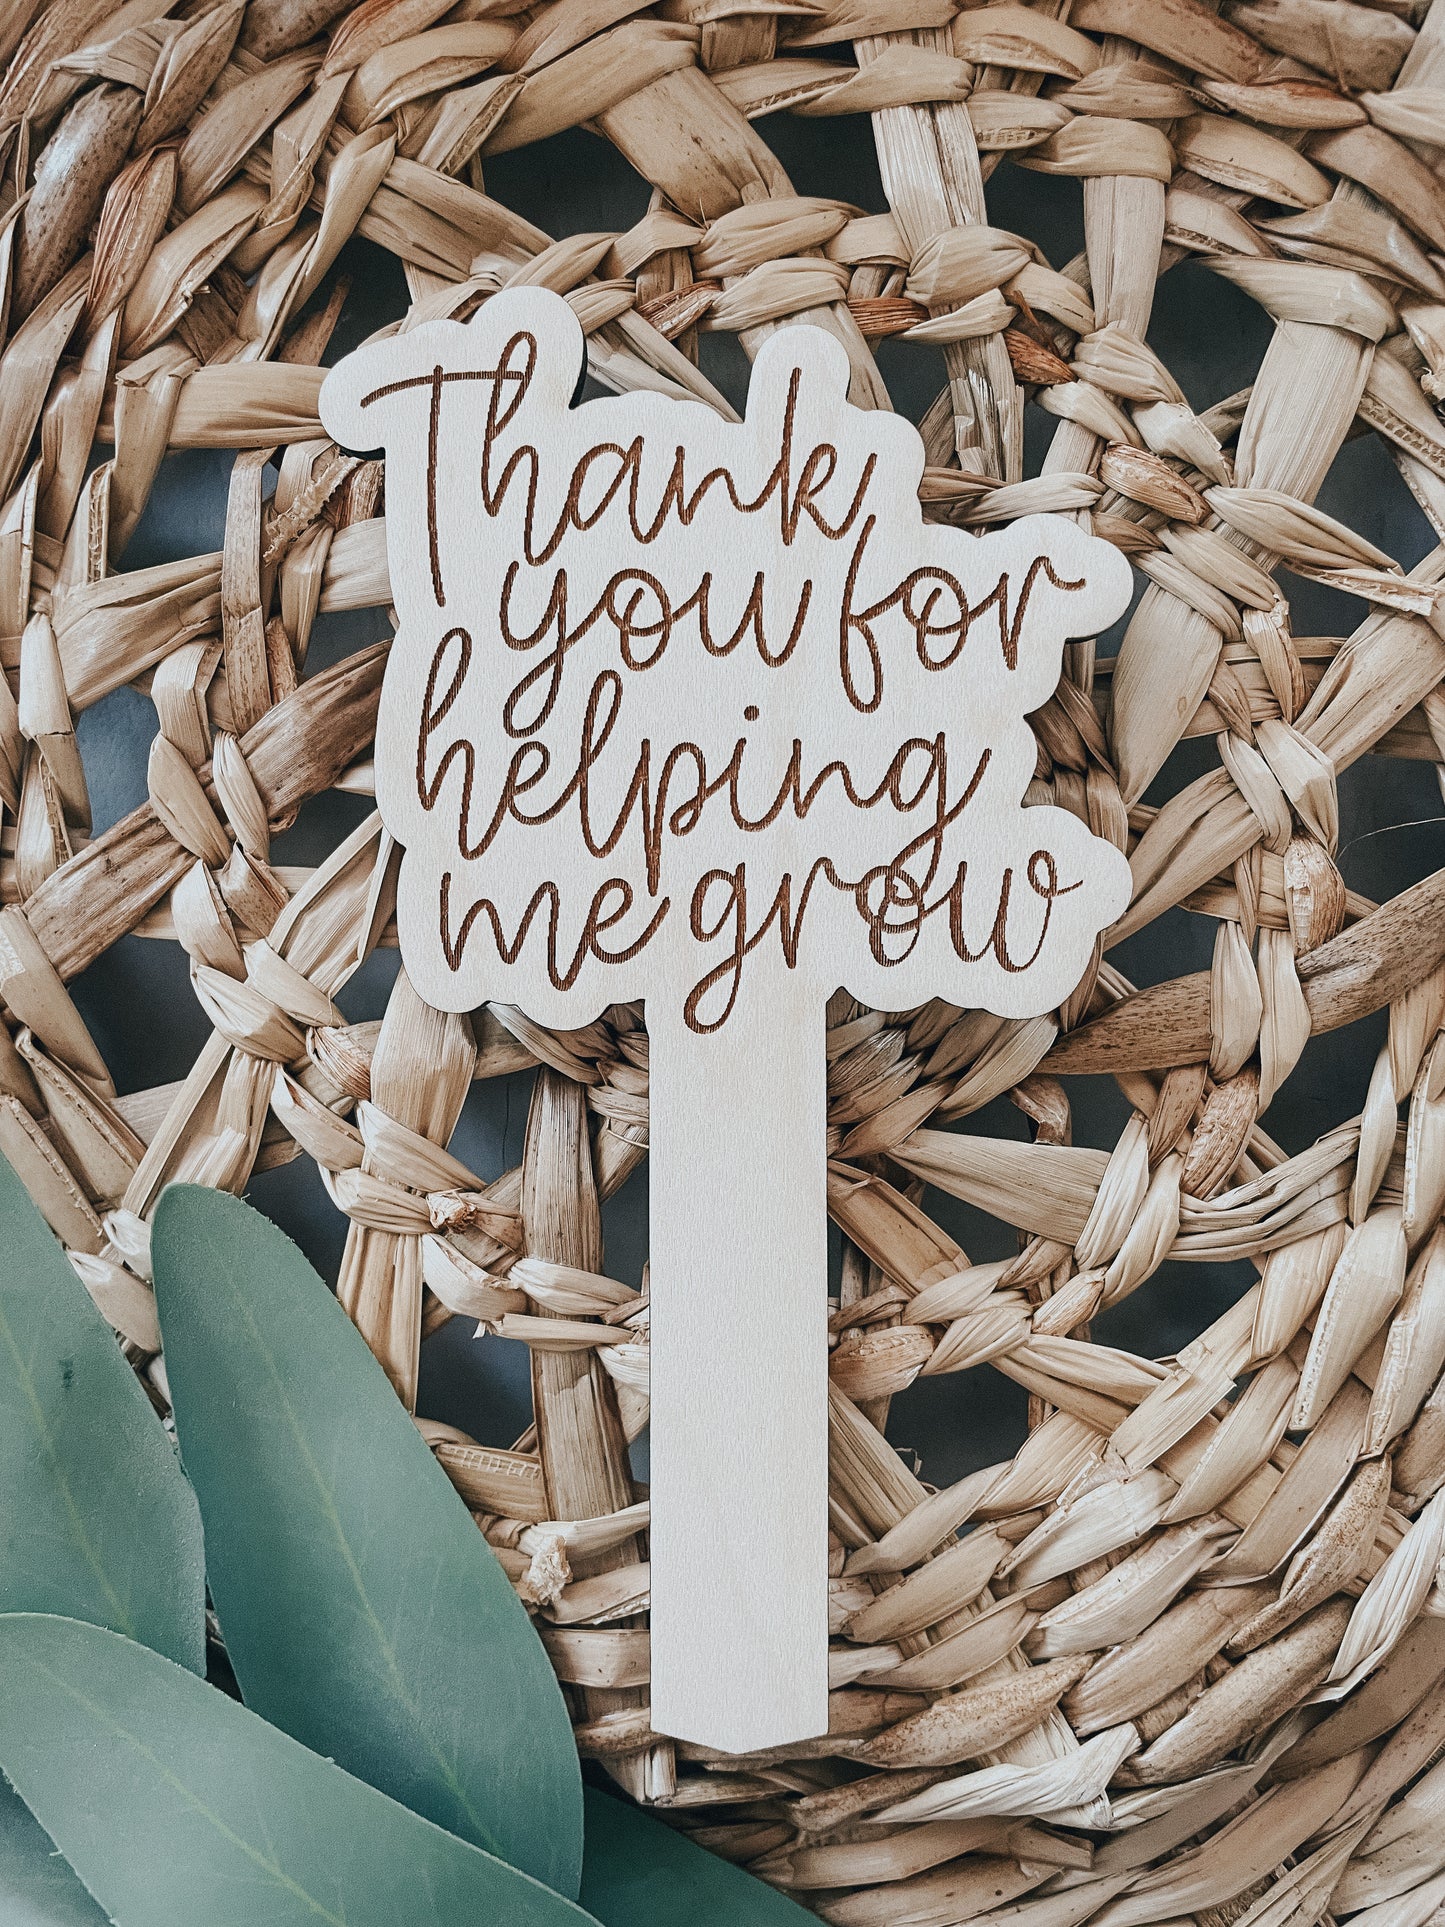 Thank
you for
helping
me grow